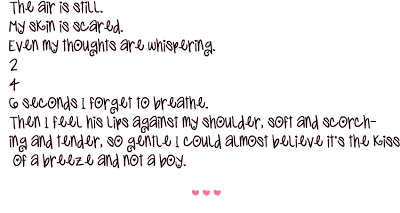 The air is still.
My skin is scared.
Even my thoughts are whispering.
2
4
6 seconds I forget to breathe.
Then I feel his lips against my shoulder, soft and scorch-
ing and tender, so gentle I could almost believe it's the kiss
of a breeze and not a boy.